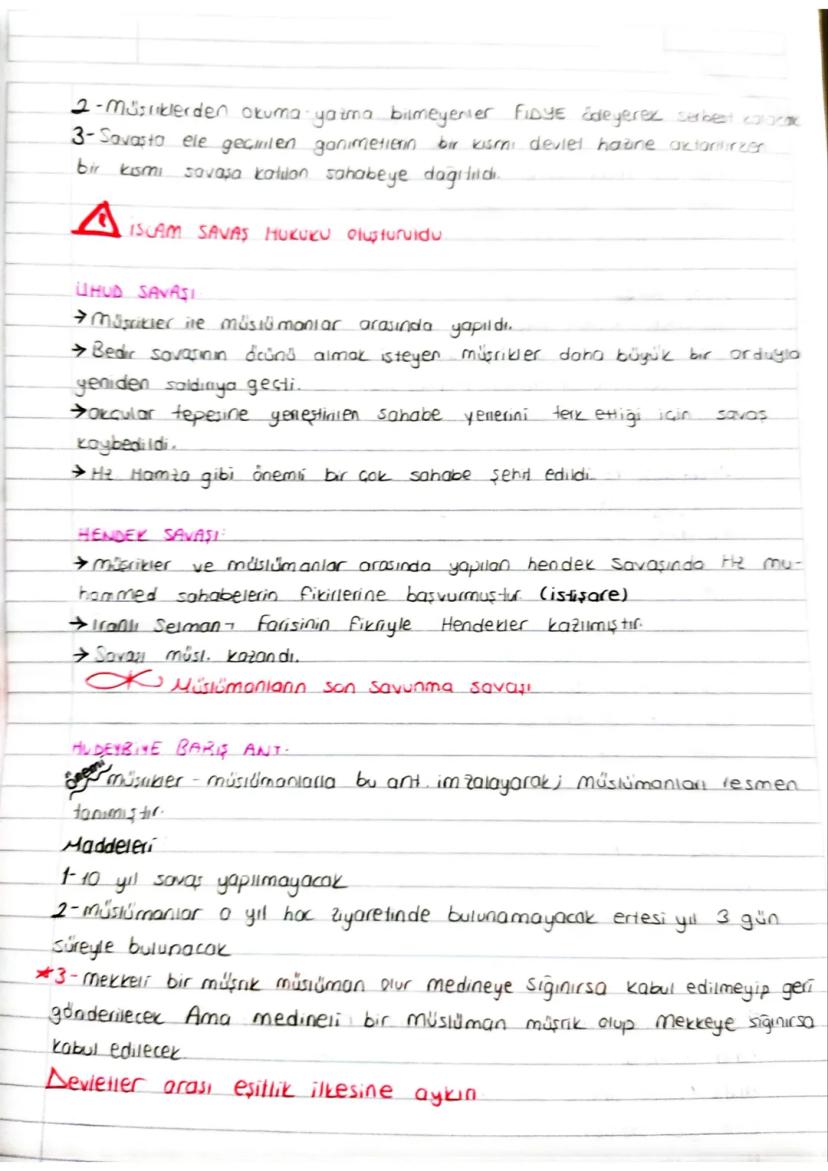 2-Müşriklerden okuma-yazma bilmeyenler FİDYE ödeyerek serbest kalacak
3-Savaşta ele geçirilen ganimetlerin bir kısmı devlet hazine aktarılırken
bir kısmı savaşa katılan sahabeye dağıtıldı.
! İSLAM SAVAŞ HUKUKU oluşturuldu
UHUD SAVAŞI
→ Müşrikler ile müslümanlar arasında yapıldı.
→ Bedir savaşının öcünü almak isteyen müşrikler daha büyük bir orduyla
yeniden saldırıya geçti.
→ okçular tepesine yerleştirilen sahabe yerlerini terk ettiği için savaş
kaybedildi.
→ Hz Hamza gibi önemli bir çok sahabe şehit edildi.
HENDEK SAVAŞI:
→ müşrikler ve müslümanlar arasında yapılan hendek savaşında Hz mu-
hammed sahabelerin fikirlerine başvurmuştur. (istişare)
→ Iranlı Selman-ı Farisinin fikriyle Hendekler kazılmıştır.
→ Savaşı müsl. kazandı.
Müslümanların son savunma savaşı
HUDEYBİYE BARIŞ ANT.
önemli müşrikler - müslümanlarla bu ant. imzalayarak; müslümanları resmen
tanımıştır.
Maddeleri
1-10 yıl savaş yapılmayacak
2-müslümanlar o yıl hac ziyaretinde bulunamayacak ertesi yıl 3 gün
süreyle bulunacak
*3-mekkeli bir müşrik müslüman olur medineye sığınırsa kabul edilmeyip geri
gönderilecek Ama medineli bir müslüman müşrik olup Mekkeye sığınırsa
kabul edilecek
Devletler arası eşitlik ilkesine aykırı